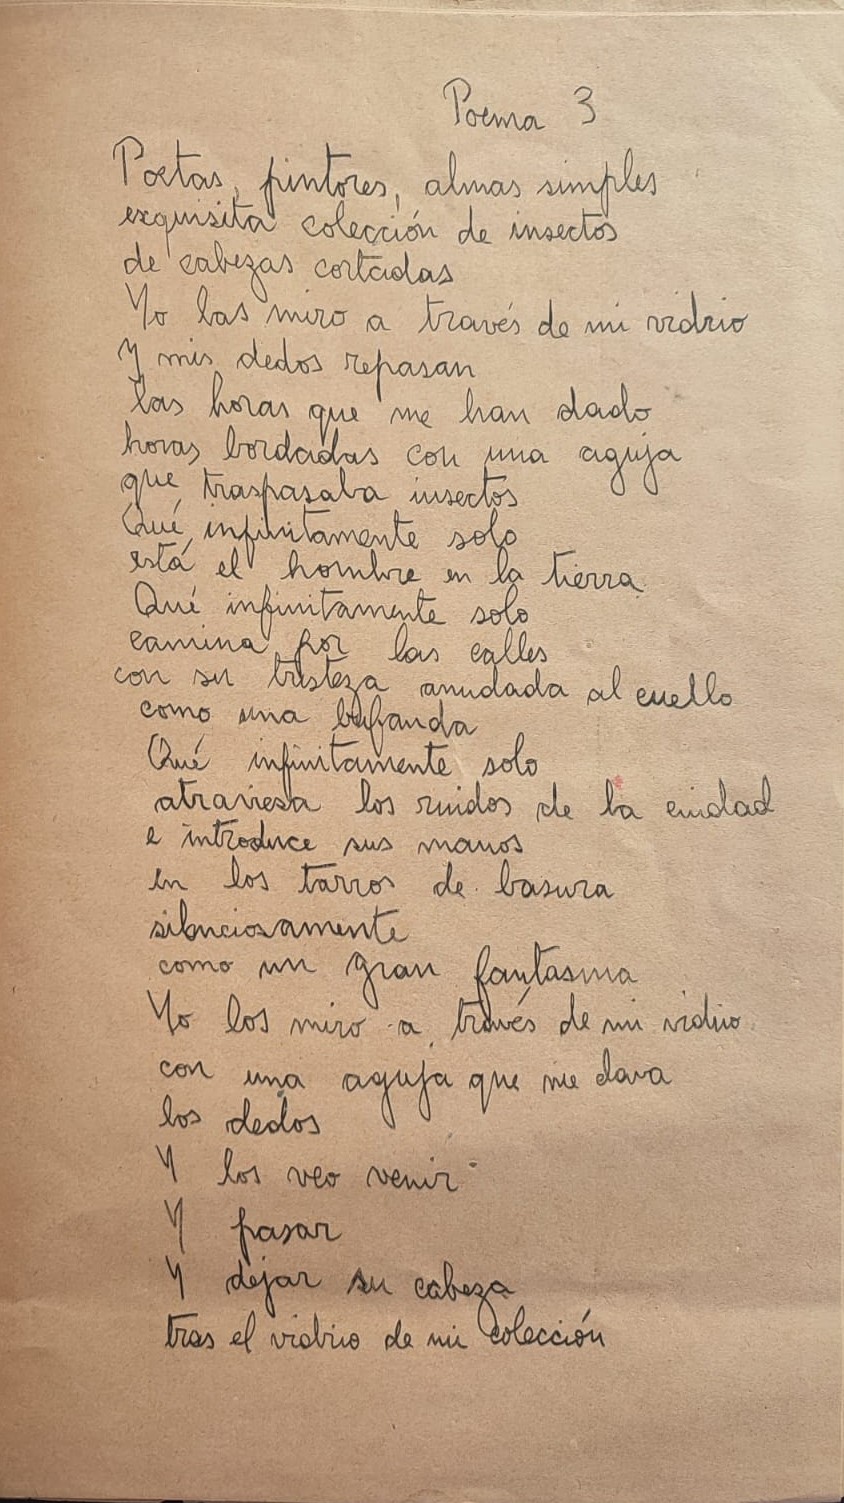 Poema 3
Poetas, pintores, almas simples
exquisita colección de insectos
de cabezas cortadas
Yo las miro a través de mi vidrio
Y mis dedos repasan
las horas que me han dado
horas bordadas con una aguja
que traspasaba insectos
Qué infinitamente solo
está el hombre en la tierra
Qué infinitamente solo
camina por las calles
con su tristeza anudada al cuello
como una bufanda
Qué infinitamente solo
atraviesa los ruidos de la ciudad
e introduce sus manos
en los tarros de basura
silenciosamente
como un gran fantasma
Yo los miro a través de mi vidrio
con una aguja que me clava
los dedos
Y los veo venir
Y pasar
Y dejar su cabeza
tras el vidrio de mi colección